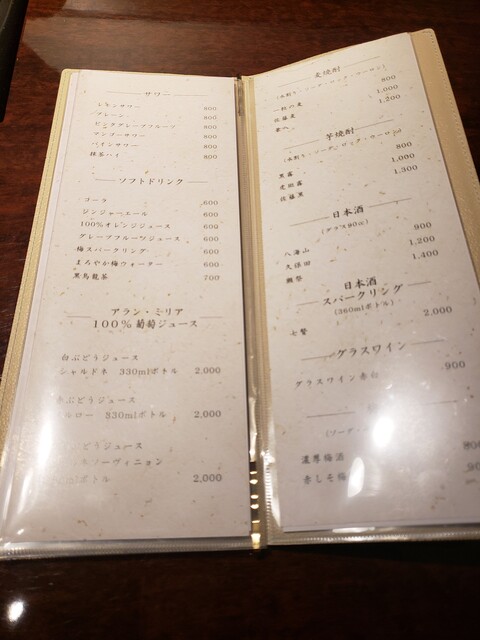 サワー
レモンサワー 800
プレーン 800
ピンクグレープフルーツ 800
マンゴーサワー 800
パインサワー 800
抹茶ハイ 800
ソフトドリンク
コーラ 600
ジンジャーエール 600
100%オレンジジュース 600
グレープフルーツジュース 600
梅スパークリング 600
まろやか梅ウォーター 600
黒烏龍茶 700
アラン・ミリア
100%葡萄ジュース
白ぶどうジュース
シャルドネ 330mlボトル 2,000
ぶどうジュース
ルロー 330mlボトル 2,000
どうジュース
ソーヴィニョン
ボトル 2,000
麦焼酎
800
1,000
佐藤麦 1,200
芋焼酎
黒霧 800
1,000
佐藤黒 1,300
日本酒
(グラス90cc)
八海山 900
久保田 1,200
獺祭 1,400
日本酒
スパークリング
(360mlボトル)
七賢 2,000
グラスワイン
グラスワイン赤白 900
(ソーダ・
濃厚梅酒 800
赤しそ梅 90